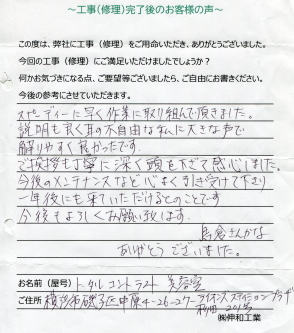 ～工事(修理)完了後のお客様の声～
この度は、弊社に工事（修理）をご用命いただき、ありがとうございました。
今回の工事（修理）にご満足いただけましたでしょうか？
何かお気づきになる点、ご要望等ございましたら、ご自由にお書きください。
今後の参考にさせていただきます。
スピーディーに早く作業に取り組んで頂きました。
説明も良く耳の不自由な私に大きな声で
解りやすくて良かったです。
ご挨拶も丁寧に深く頭を下げて感心しました。
今後のメンテナンスなど心よく引き受けて下り
一年後にも来ていただけるとのことです
今後もよろしくお願い致します。
ありがとうございました。
お名前（屋号）トータルコントラスト美容室
ご住所 横浜市磯子区中原4-26-27-ライオンズステーションプラザ
㈱伸和工業